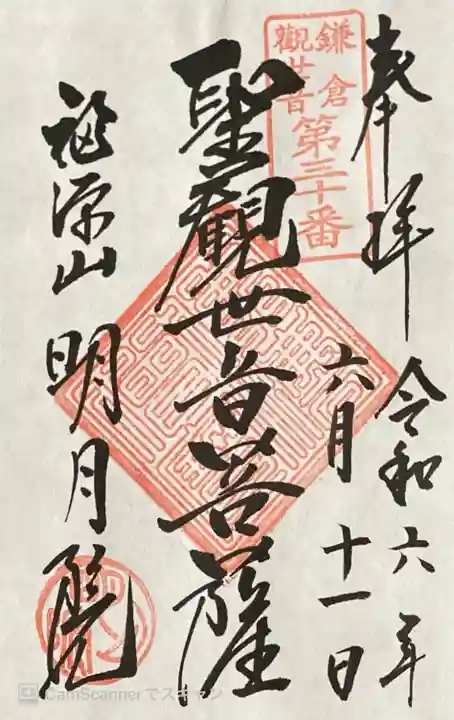 奉拝 令和六年
六月十一日
鎌倉
観世音
第三十番
聖観世音菩薩
福源山 明月院
CamScannerでスキャン